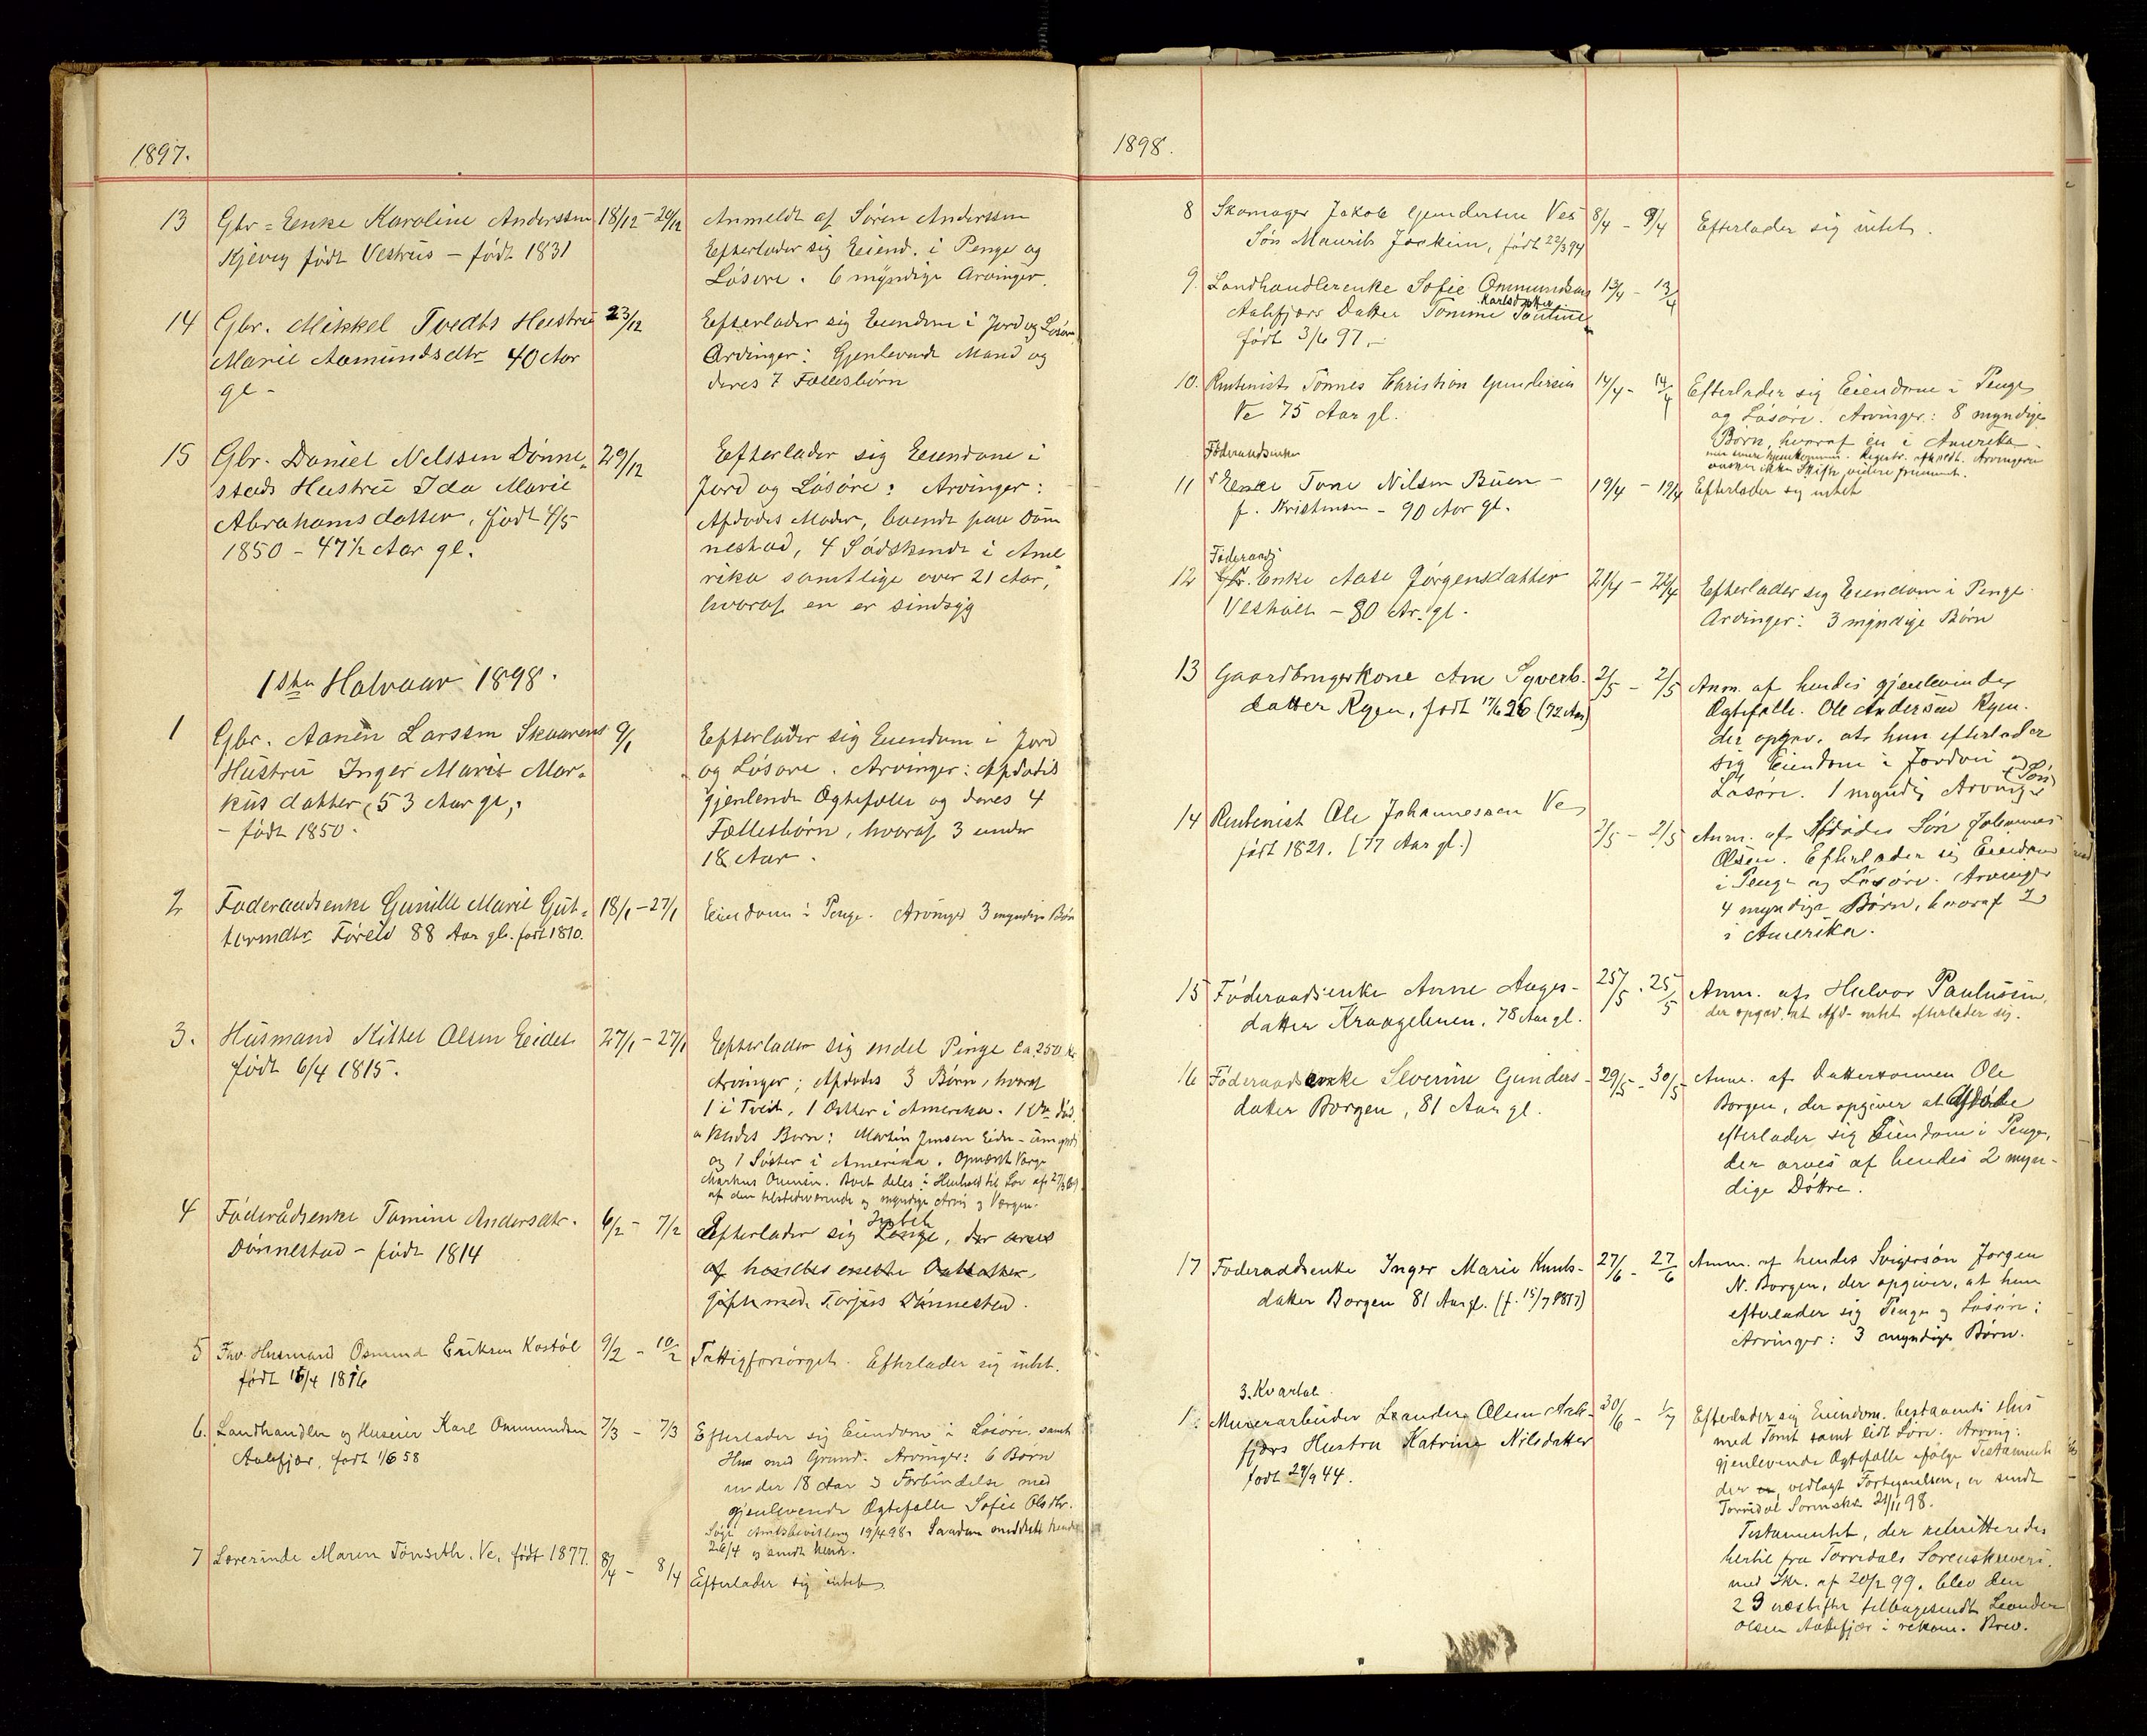 1897.
13 Gbr = Enke Karoline Anderssen 18/12 - 20/12 Anmeldt af Søren Anderssen
Kjevig født Vestrüs – født 1831 Efterlader sig Eiend. i Penge og
Løsøre. 6 myndige Arvinger.
14 Gbr. Mikkel Tvedts Hustrü 23/12 Efterlader sig Eiendom i Jord og Løsøre
Marie Aamundsdtr 40 Aar Arvinger: Gjenlevende Mand og
gl – deres 7 Fællesbørn
15 Gbr. Daniel Nelssen Dønne= 29/12 Efterlader sig Eiendom i
stads Hustrü Ida Marie Jord og Løsøre: Arvinger:
Abrahamsdatter, født 4/5 Afdødes Moder, boende paa Døn
1850 – 47½ Aar gl. nestad, 4 Sødskende i Ame
rika samtlige over 21 Aar,
hvoraf en er sindsyg
1ste Halvaar 1898.
1 Gbr. Aanen Larssen Skaarens 9/1 Efterlader sig Eiendom i Jord
Hüstrü Inger Marie Mar= og Løsøre. Arvinger: Afdødes
küsdatter, 53 Aar gl, gjenlende Ægtefælle og deres 4
– født 1850. Fællesbørn, hvoraf 3 under
18 Aar.
2 Føderaadsenke Gunille Marie Güt= 18/1 - 27/1 Eiendom i Penge. Arvinger 3 myndige Børn
tormdtr Føreid 88 Aar gl. født 1810.
3. Hüsmand Kittel Olsen Eidet 27/1 - 27/1 Efterlader sig endel Penge ca. 250 Kr.
født 6/4 1815. Arvinger; Afdødes 3 Børn, hvoraf
1 i Tveit, 1 Datter i Amerika. 1 Dtr død
Børn: Martin Jensen Eide – umyndig
og 1 Søster i Amerika. Opnævnt Værge
Markus Aanisen. Boet deles i Henhold til Lov af
af den tilstedeværende og myndige Arving og Værgen.
4 Føderådsenke Tomine Andersdtr. 6/2 - 7/2 Efterlader sig Intet Penge, der arves
Dønnestad – født 1814 af hendes eneste Datter,
gift med Torjus Dønnestad.
5 Fhv. Husmand Osmund Eriksen Kostøl 9/2 - 10/2 Fattigforsørget. Efterlader sig intet.
født 15/4 1816
6. Landhandler og Huseier Karl Ommundsen 7/3 - 7/3 Efterlader sig Eiendom i Løsøre, samt
Aalefjær, født 1/6 58 Hus med Grund. Arvinger: 6 Børn
under 18 Aar i Forbindelse med
gjenlevende Ægtefælle Sofie Olsdtr.
Søgt Amtsbevilling 19/4 98. Saadan meddelt hende
26/4 og sendt hende.
7 Lærerinde Maren Tønsdtr. Ve, født 1877. 8/4 - 8/4 Efterlader sig intet.
1898.
8 Skomager Jakob Gundersen Ves 8/4 - 9/4 Efterlader sig intet.
Søn Maurits Joakim, født 22/3 94
9. Landhandlerenke Sofie Ommundsens 13/4 - 13/4
Aalefjærs Datter Tomme Karlsdatter
født 3/6 97. –
10. Rentenist Tønnes Christian Gundersen 14/4 - 14/4 Efterlader sig Eiendom i Penge
Ve 75 Aar gl. og Løsøre. Arvinger: 8 myndige
Børn, hvoraf en i Amerika
Arvingerne
ønsker ikke Skifte videre fremmet.
Føderaadsenke
11 Enke Tone Nilsen Büen – 19/4 - 19/4 Efterlader sig intet
f. Kristensen – 90 Aar gl.
Føderaads
12 Enke Aase Jørgensdatter 21/4 - 22/4 Efterlader sig Eiendom i Penge
Vesthølt – 80 Ar. gl. Arvinger: 3 myndige Børn
13 Gaardbrugerkone Ane Syverts- 2/5 - 2/5 Anm. af hendes gjenlevende
datter Ryen, født 17/6 26 (72 Aar) Ægtefælle. Ole Andersen Ryen.
der opgav, at hun efterlader
sig Eiendom i Jordvei og
Løsøre. 1 myndig Arving (Søn)
14 Rentenist Ole Johannessen Ve 2/5 - 2/5 Anm. af Afdødes Søn Johannes
født 1821. (77 Aar gl.) Olsen. Efterlader sig Eiendom
i Penge og Løsøre. Arvinger
4 myndige Børn, hvoraf 2
i Amerika.
15 Føderaadsenke Anne Aages- 25/5 - 25/5 Anm. af Halvor Paulussen,
datter Kraagebuen, 78 Aar gl. der opgav, at Afd. intet efterlader sig.
16 Føderaadsenke Severine Gunders- 29/5 - 30/5 Anm. af Dattersønnen Ole
datter Borgen, 81 Aar gl. Borgen, der opgiver at Afdøde
efterlader sig Eiendom i Penge,
der arves af hendes 2 myn-
dige Døttre.
17 Føderaadsenke Inger Marie Knuts- 27/6 - 27/6 Anm. af hendes Svigersøn Jørgen
datter Borgen 81 Aar gl. (f. 15/7 1817) N. Borgen, der opgiver, at hun
efterlader sig Penge og Løsøre:
Arvinger: 3 myndige Børn.
3. Kvartal
1. Murerarbeider Leander Olsen Aale- 30/6 - 1/7 Efterlader sig Eiendom. bestaaende Hus
fjærs Hustru Katrine Nilsdatter med Tomt samt lidt Løsøre. Arving:
født 29/9 44. gjenlevende Ægtefælle ifølge Testament
der er vedlagt Fortegnelsen, er sendt
Torridal Sorensk. 21/11 98.
Testamentet, der
hertil fra Torridals Sorenskriveri.
med Skr. af 20/2 99. blev den
23 næstefter tilbagesendt Leander
Olsen Aalefjær i rekom. Brev.